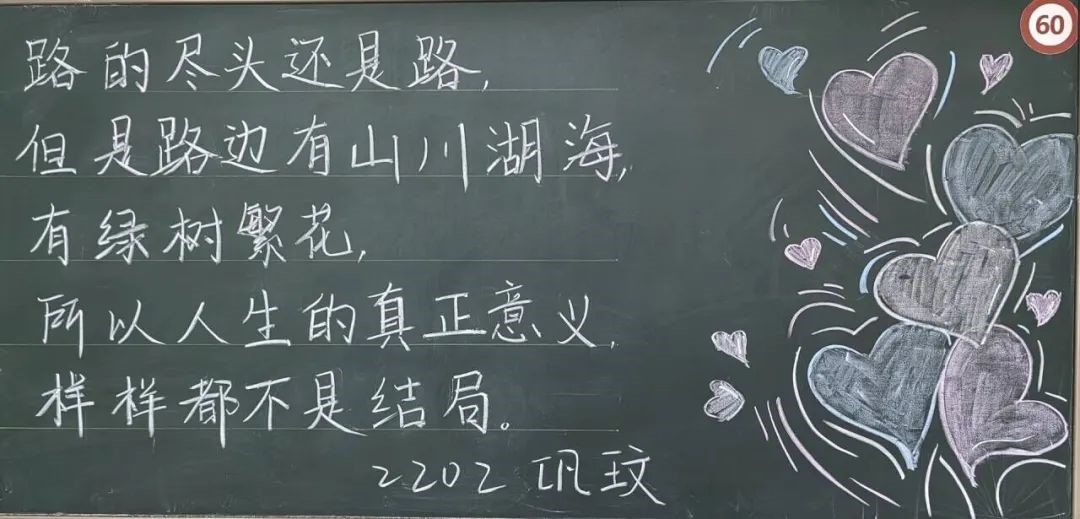 路的尽头还是路,
但是路边有山川湖海,
有绿树繁花,
所以人生的真正意义,
样样都不是结局。
2202 巩玟
60